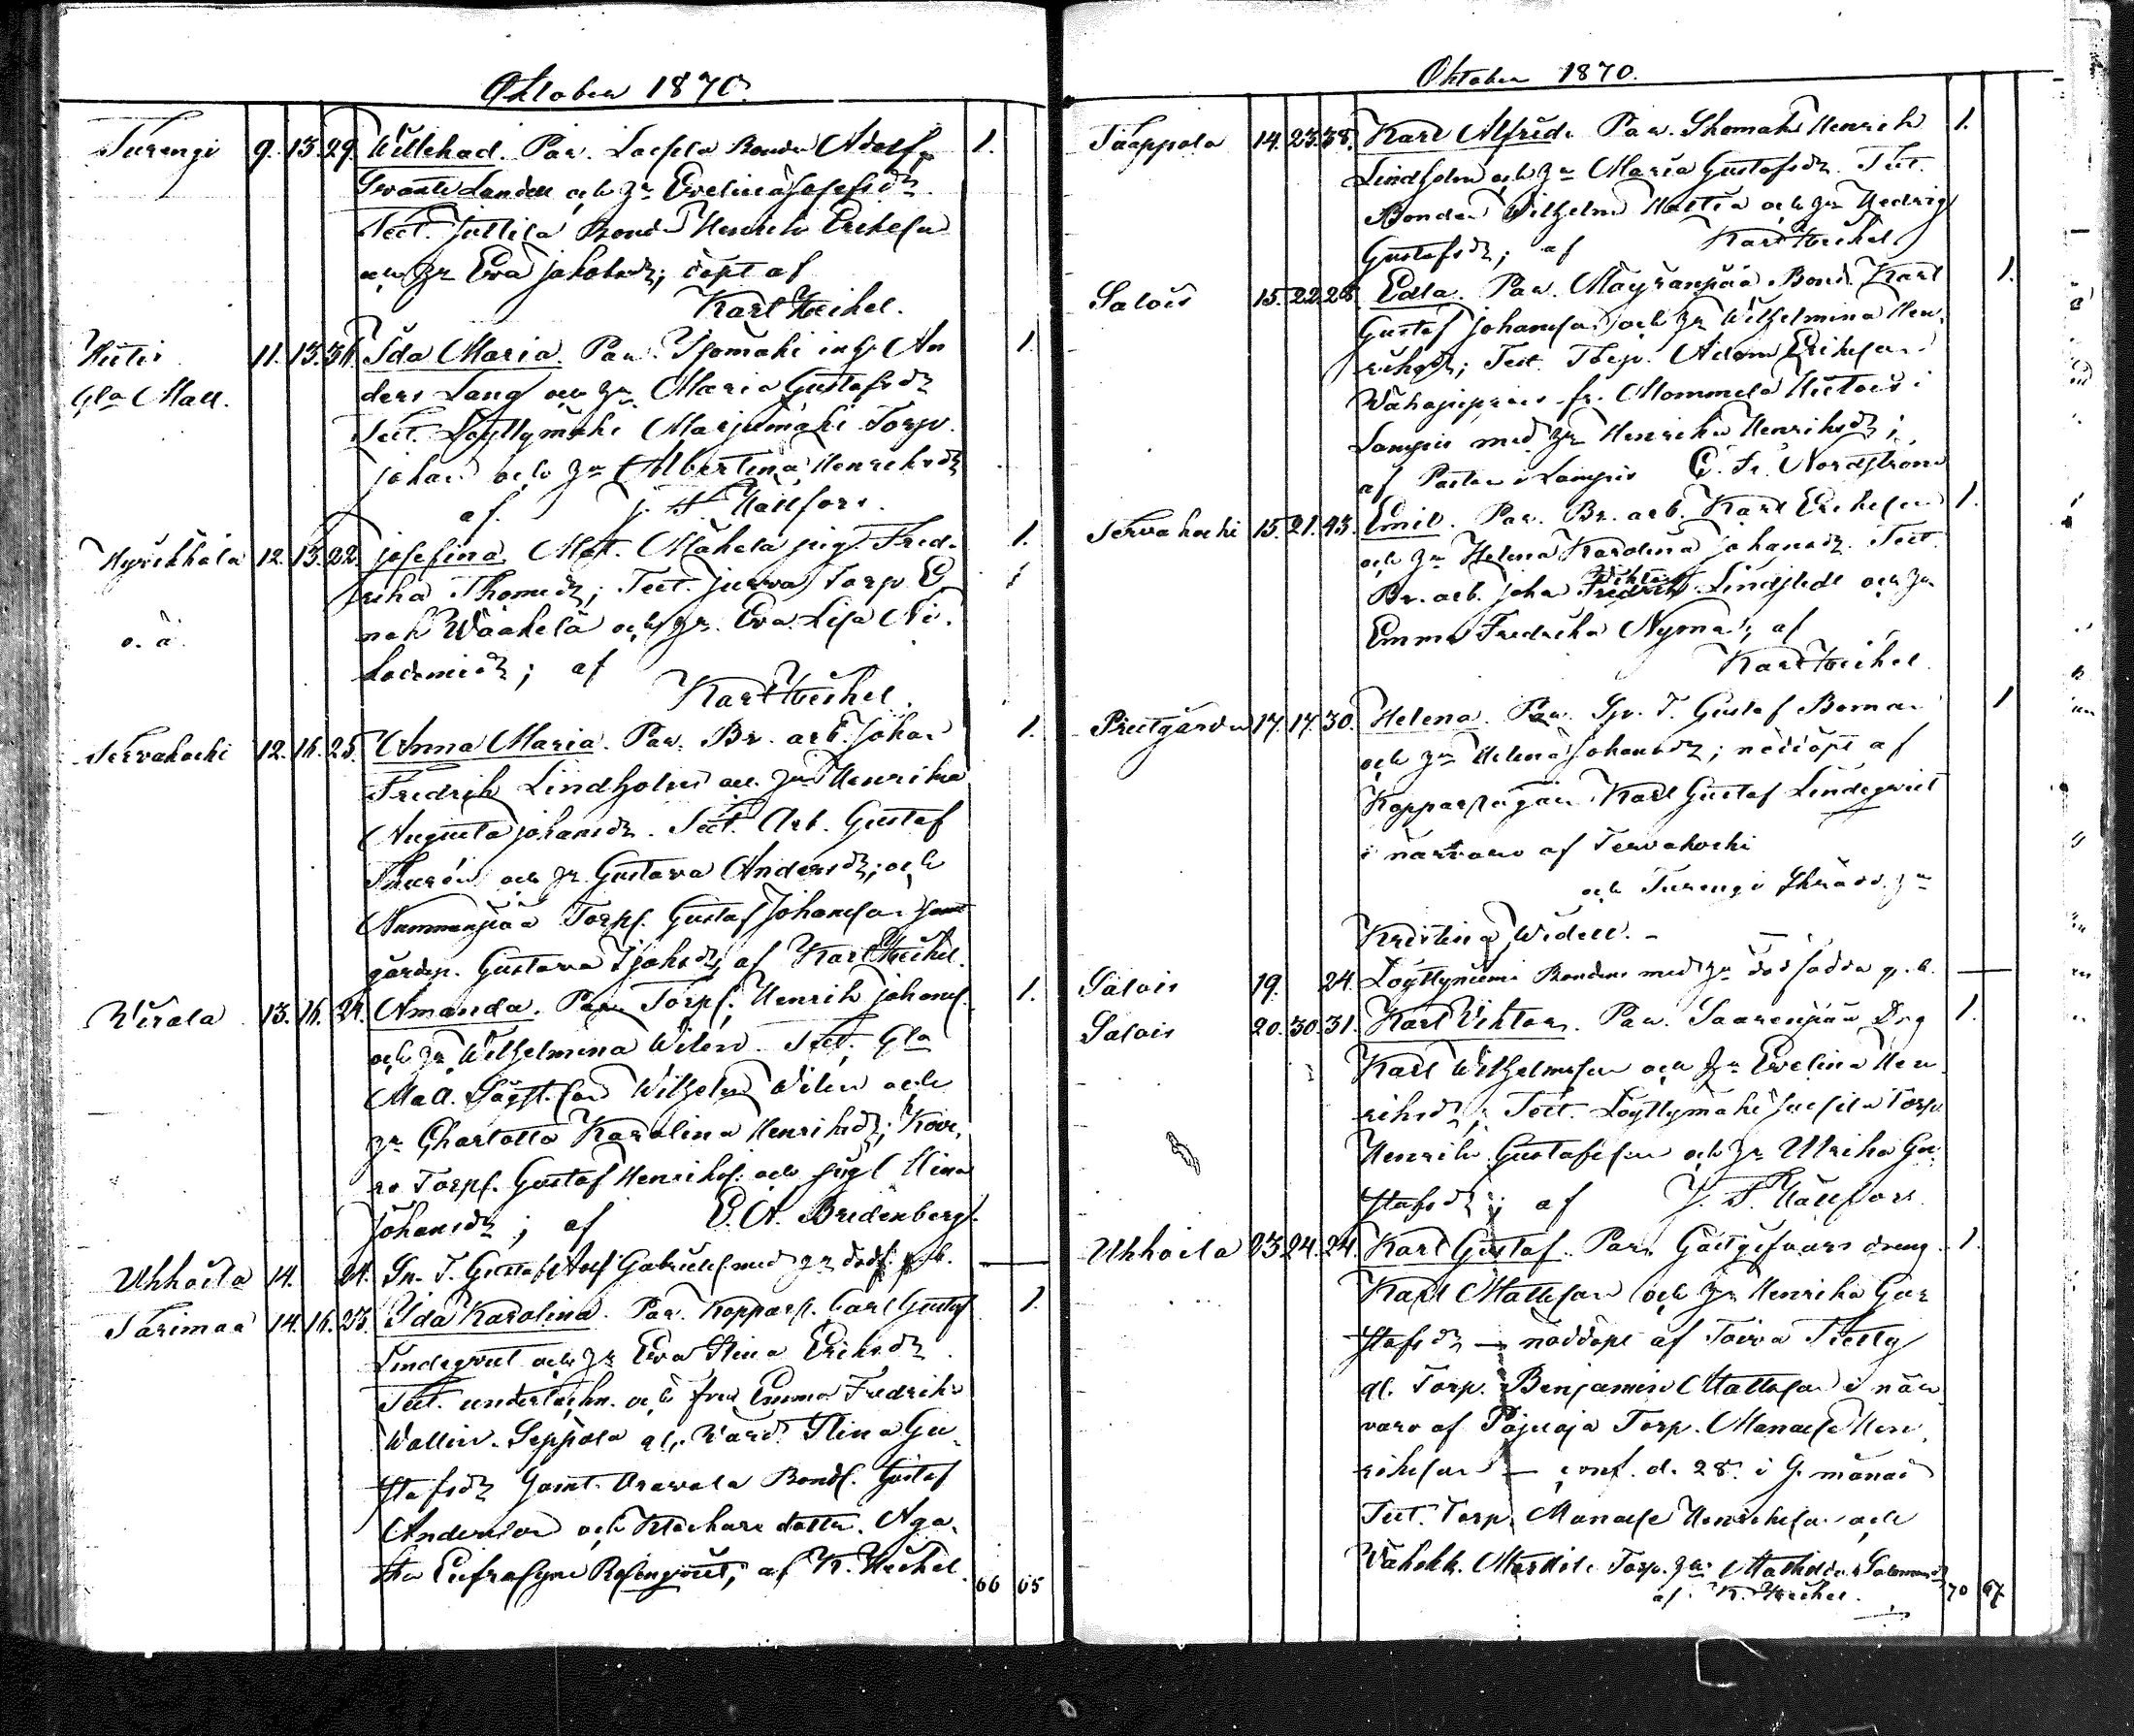 Oktober 1870.
Turengi 9. 13. 29. Willehad. Par. Bonden Adolf 1.
Landell och hu Evelina Josefsdr
Test. Juttila Bond. Henrik Eriksson
och hu Eva Jakobsdr; döpt af
Karl Heikel.
Hietis 11. 13. 36. Ida Maria. Par. Isomäki inh. An 1.
Gla Mall. ders Lang och hu Maria Gustafsdr
Test. Löyttymäki Marjamäki Torp.
Johan och hu Albertina Henriksdr
af J. F. Hällfors.
Hyvikkälä 12. 13. 22. Josefina. Mat. Mäkelä pig. Fred- 1.
rika Thomedr; Test. Jurva Torp. E
o. ä. nok Wäähelä och hu Eva Lisa Ni-
kodemidr; af
Karl Heikel.
Tervakoski 12. 16. 25. Anna Maria. Par. Br. arb. Johan 1.
Fredrik Lindholm och hu Henrika
Augusta Johansdr. Test. Arb. Gustaf
Thurén och hu Gustava Andersdr; och
Nummenpää Torps. Gustaf Johansson samt
gårdsp. Gustava Johsdr af Karl Heikel.
Wirala 13. 16. 24. Amanda. Par. Torps. Henrik Johans. 1.
och hu Wilhelmina Wilén. Test. Gla
Mall. Wilhelm Wilén och
hu Charlotta Karolina Henriksdr; Kove-
ro Torps. Gustaf Henriks. och pig. Stina
Johansdr; af E. A. Bredenberg.
Uhkoila 14. 24. Sn. T. Gustaf Adolf Gabriels. med hu dödf. g. b. —
Tarimaa 14. 16. 23. Ida Karolina. Par. Kopparsl. Carl Gustaf 1.
Lindeqvist och hu Eva Stina Eriksdr.
Test. underteckn. och fru Emma Fredrika
Wallin. Seppälä Stina Gu-
stafsdr samt Aravala Bonds. Gustaf
Andersson och klockare dottr. Aga-
tha Eufrosyne Rosenqvist; af K. Heikel.
66 65
Oktober 1870.
Tåappola 14. 23. 38. Karl Alfred. Par. Skomak. Henrik 1.
Lindholm och hu Maria Gustafsdr. Test.
Bonden Wilhelm Mattila och hu Hedvig
Gustafsdr; af Karl Heikel
Salois 15. 22. 28. Edla. Par. Mäyränpää Bond. Karl 1.
Gustaf Johansson och hu Wilhelmina Hen-
riksdr; Test. Torp. Adam Eriksson
fr. Mommela Hietois i
Lampis med hu Henrika Henriksdr;
af Pastor i Lampis C. Fr. Nordström
Tervakoski 15. 21. 43. Emil. Par. Br. arb. Karl Eriksson 1.
och hu Helena Karolina Johansdr. Test.
Br. arb. Johan Viktor Lindstedt och hu
Emma Fredrika Nyman; af
Karl Heikel.
Prestgården 17. 17. 30. Helena. Par. Sp. T. Gustaf Boman 1
och hu Helena Johansdr; nöddöpt af
Kopparslagaren Karl Gustaf Lindeqvist
i närvaro af Tervakoski
och Turengi Skrädd. hu
Kristina Widell. —
Salois 19. 24. Löyttyniemi Bonden med hu dödfödda g. b. —
Salois 20. 30. 31. Karl Viktor. Par. Saarenpää Drg 1.
Karl Wilhelmsson och hu Evelina Hen-
riksdr; Test. Löyttymäki Torp.
Henrik Gustafsson och hu Ulrika Gu-
stafsdr; af J. F. Hällfors.
Uhkoila 23. 24. 24. Karl Gustaf. Par. Gästgifvars dreng 1.
Karl Mattsson och hu Henrika Gu-
stafsdr — nöddöpt af Toivo
gl. Torp. Benjamin Mattsson i när
varo af Pajuoja Torp. Manasse Hen-
riksson — conf. d. 28 i s. månad
Test. Torp. Manasse Henriksson och
Wähäkk. Torp. hu Mathilda Salomonsdr
af K. Heikel.
70 67